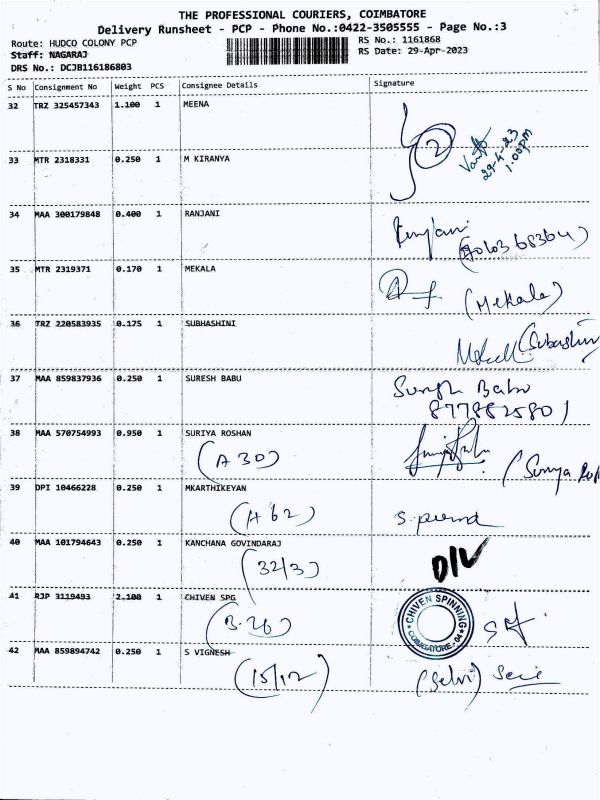 THE PROFESSIONAL COURIERS, COIMBATORE
Delivery Runsheet - PCP - Phone No.:0422-3505555 - Page No.:3
Route: HUDCO COLONY PCP
RS No.: 1161868
Staff: NAGARAJ
RS Date: 29-Apr-2023
DRS No.: DCJB116186803
S No Consignment No Weight PCS Consignee Details Signature
32 TRZ 325457343 1.100 1 MEENA
2
29-4-23
1.00pm
33 MTR 2318331 0.250 1 M KIRANYA
34 MAA 300179848 0.400 1 RANJANI
35 MTR 2319371 0.170 1 MEKALA
(Mekala)
36 TRZ 220583935 0.175 1 SUBHASHINI
37 MAA 859837936 0.250 1 SURESH BABU
Suresh Babu
8778825801
38 MAA 570754993 0.950 1 SURIYA ROSHAN
(A 30)
39 DPI 10466228 0.250 1 MKARTHIKEYAN
(A 62)
40 MAA 101794643 0.250 1 KANCHANA GOVINDARAJ
(32/3)
41 RJP 3119493 2.100 1 CHIVEN SPG
(B.26)
CHIVEN SPINNING
COIMBATORE-04
42 MAA 859894742 0.250 1 S VIGNESH
(15/12)
(Selvi)